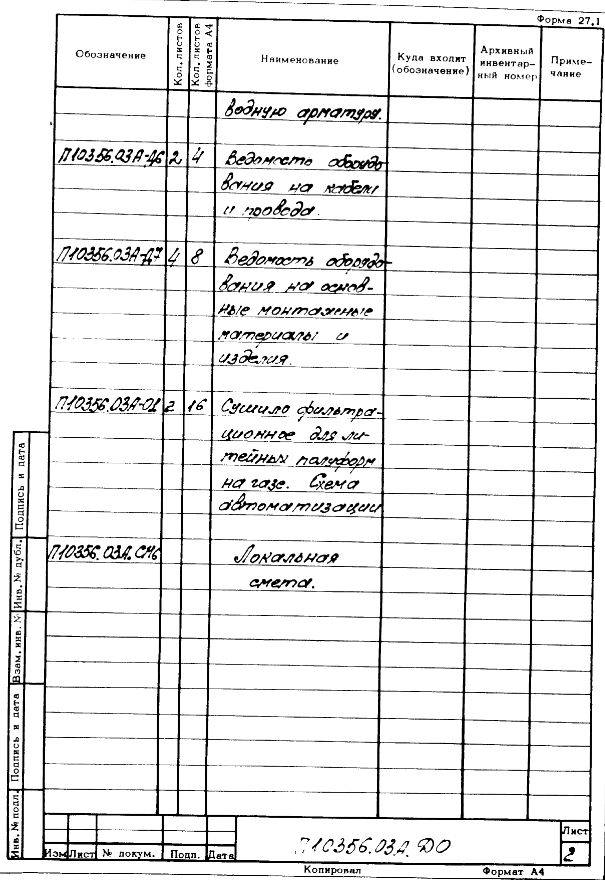 Форма 27.1
Обозначение
Кол. листов
Кол. листов формата А4
Наименование
Куда входит (обозначение)
Архивный инвентар-ный номер
Приме-чание
водную арматуру.
П10356.03А-Д6 2 4 Ведомость оборудо
вания на кабели
и провода.
П10356.03А-Д7 4 8 Ведомость оборудо-
вания на основ-
ные монтажные
материалы и
изделия.
П10356.03А-01 2 16 Сушило фильтра-
ционное для ли-
тейных полуформ
на газе. Схема
автоматизации
П10356.03А.СМ6 Локальная
смета.
Инв. № подл. Подпись и дата Взам. инв. № Инв. № дубл. Подпись и дата
Изм Лист № докум. Подп. Дата
П10356.03А.ДО
Лист
2
Копировал
Формат А4